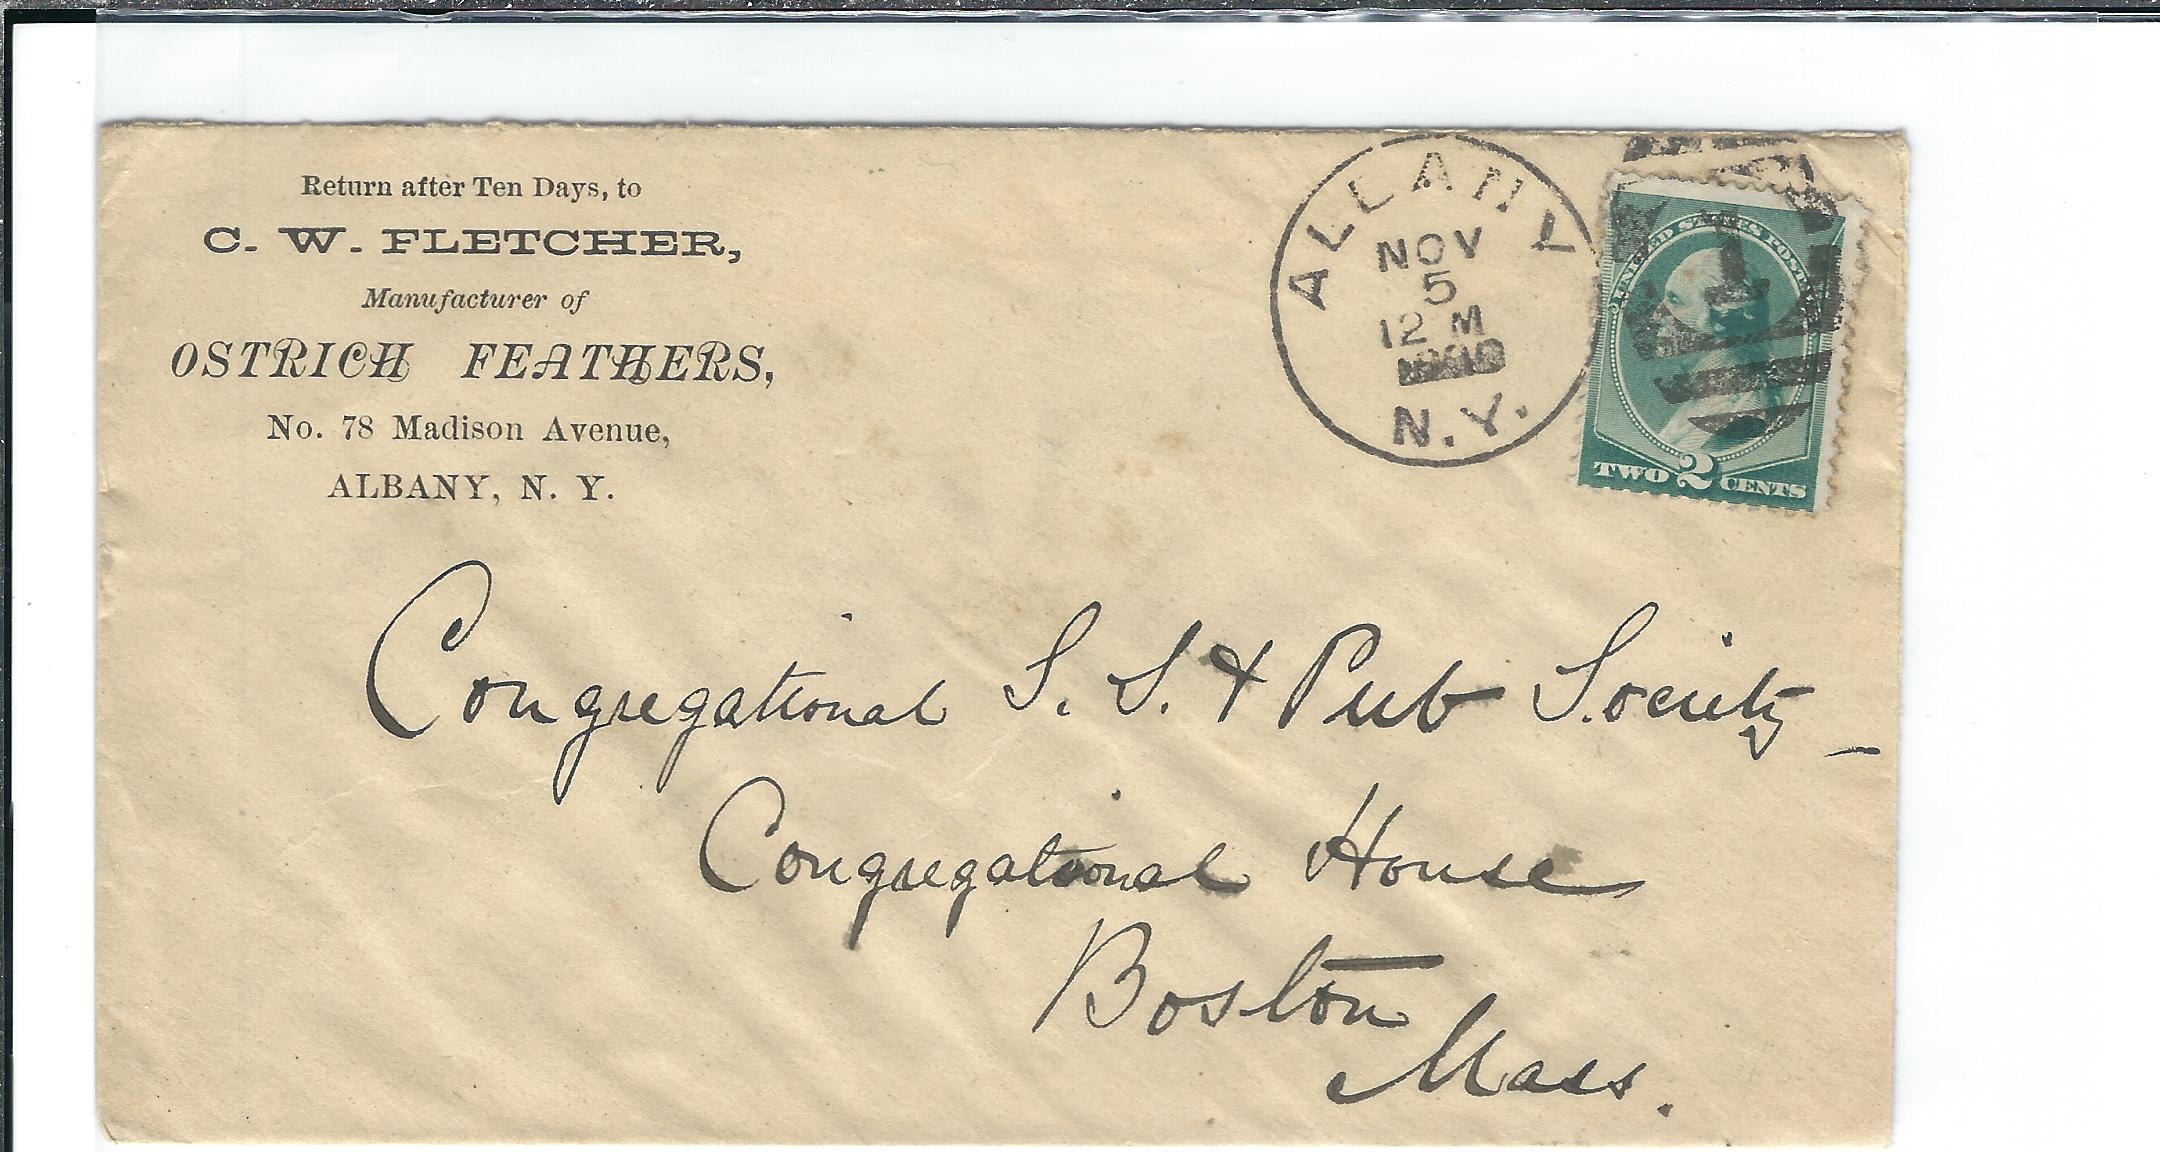 Return after Ten Days, to
C. W. FLETCHER,
Manufacturer of
OSTRICH FEATHERS,
No. 78 Madison Avenue,
ALBANY, N. Y.
ALBANY
NOV
5
12 M
N.Y.
UNITED STATES POSTAGE
TWO 2 CENTS
Congregational S. S. & Pub Society –
Congregational House
Boston
Mass.